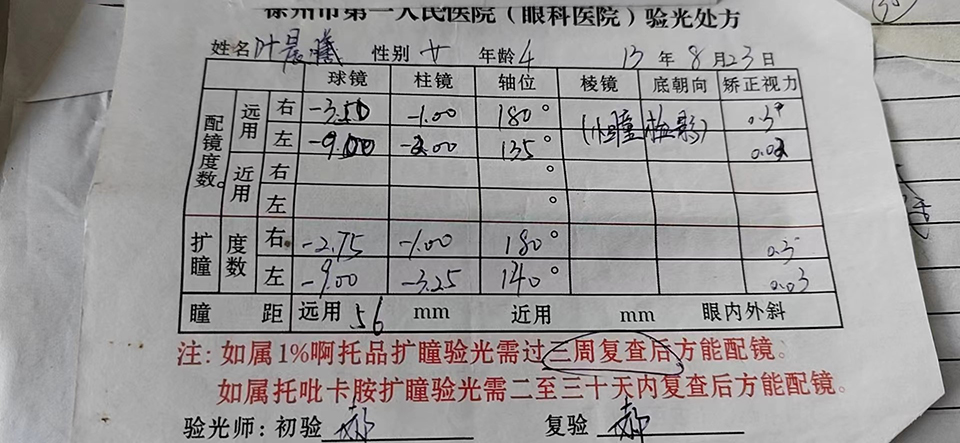 徐州市第一人民医院（眼科医院）验光处方
姓名 叶晨曦 性别 女 年龄 4 13 年 8 月 23 日
球镜 柱镜 轴位 棱镜 底朝向 矫正视力
配镜度数 远用 右 -3.50 -1.00 180° (小瞳检影) 0.3+
左 -9.00 -2.00 135° 0.02
近用 右 °
左 °
扩瞳 度数 右 -2.75 -1.00 180° 0.3
左 -9.00 -3.25 140° 0.03
瞳 距 远用 56 mm 近用 mm 眼内外斜
注：如属1%啊托品扩瞳验光需过三周复查后方能配镜。
如属托吡卡胺扩瞳验光需二至三十天内复查后方能配镜。
验光师：初验 郝 复验 郝